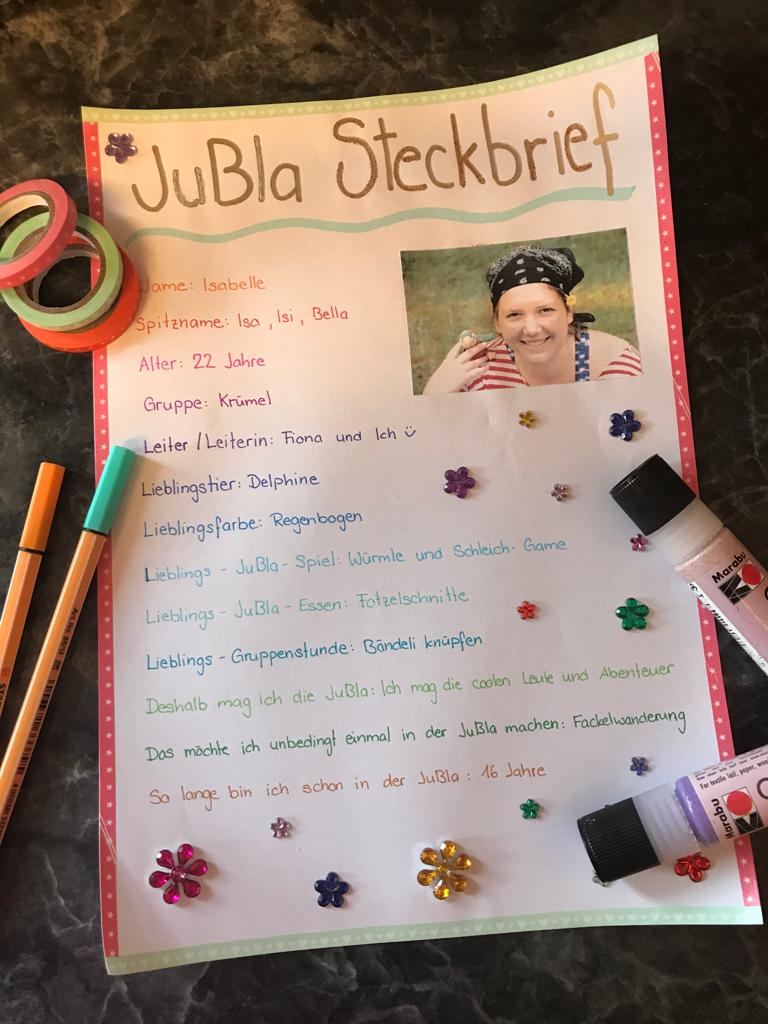 JuBla Steckbrief
Name: Isabelle
Spitzname: Isa, Isi, Bella
Alter: 22 Jahre
Gruppe: Krümel
Leiter/Leiterin: Fiona und Ich ü
Lieblingstier: Delphine
Lieblingsfarbe: Regenbogen
Lieblings-JuBla-Spiel: Würmle und Schleich-Game
Lieblings-JuBla-Essen: Fotzelschnitte
Lieblings-Gruppenstunde: Bändeli knüpfen
Deshalb mag ich die JuBla: Ich mag die coolen Leute und Abenteuer
Das möchte ich unbedingt einmal in der JuBla machen: Fackelwanderung
So lange bin ich schon in der JuBla: 16 Jahre
Marabu
Marabu